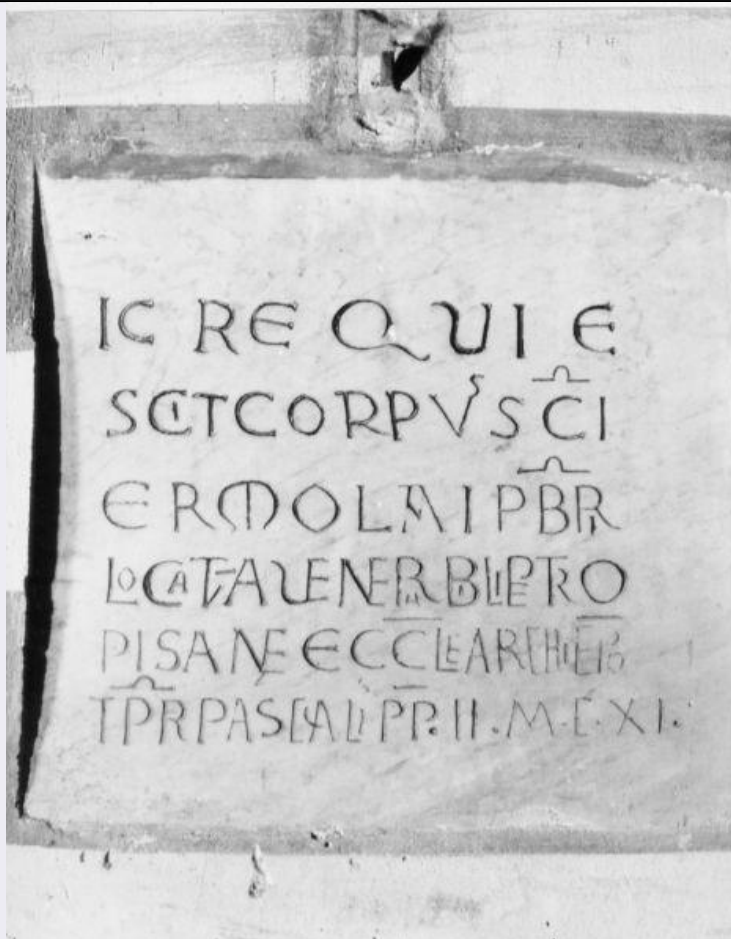 IC REQUIE
SCITCORPVS CI
ERMOLAI PBR
LOCATA VENERABILI PETRO
PISANE ECCLE ARCHIEPO
TPR PASCALI PP. II. M.C.XI.